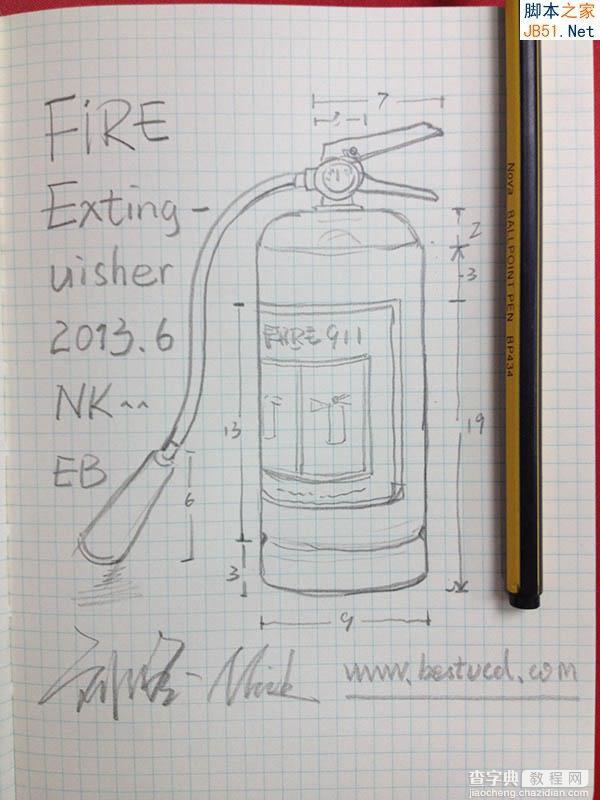 脚本之家
JB51.Net
FiRE
Exting-
uisher
2013.6
NK~~
EB
7
3
2
3
19
13
6
3
9
FIRE 911
Nova BALLPOINT PEN BP434
Mick
www.bestucd.com
查字典 教程网
jiaocheng.chazidian.com